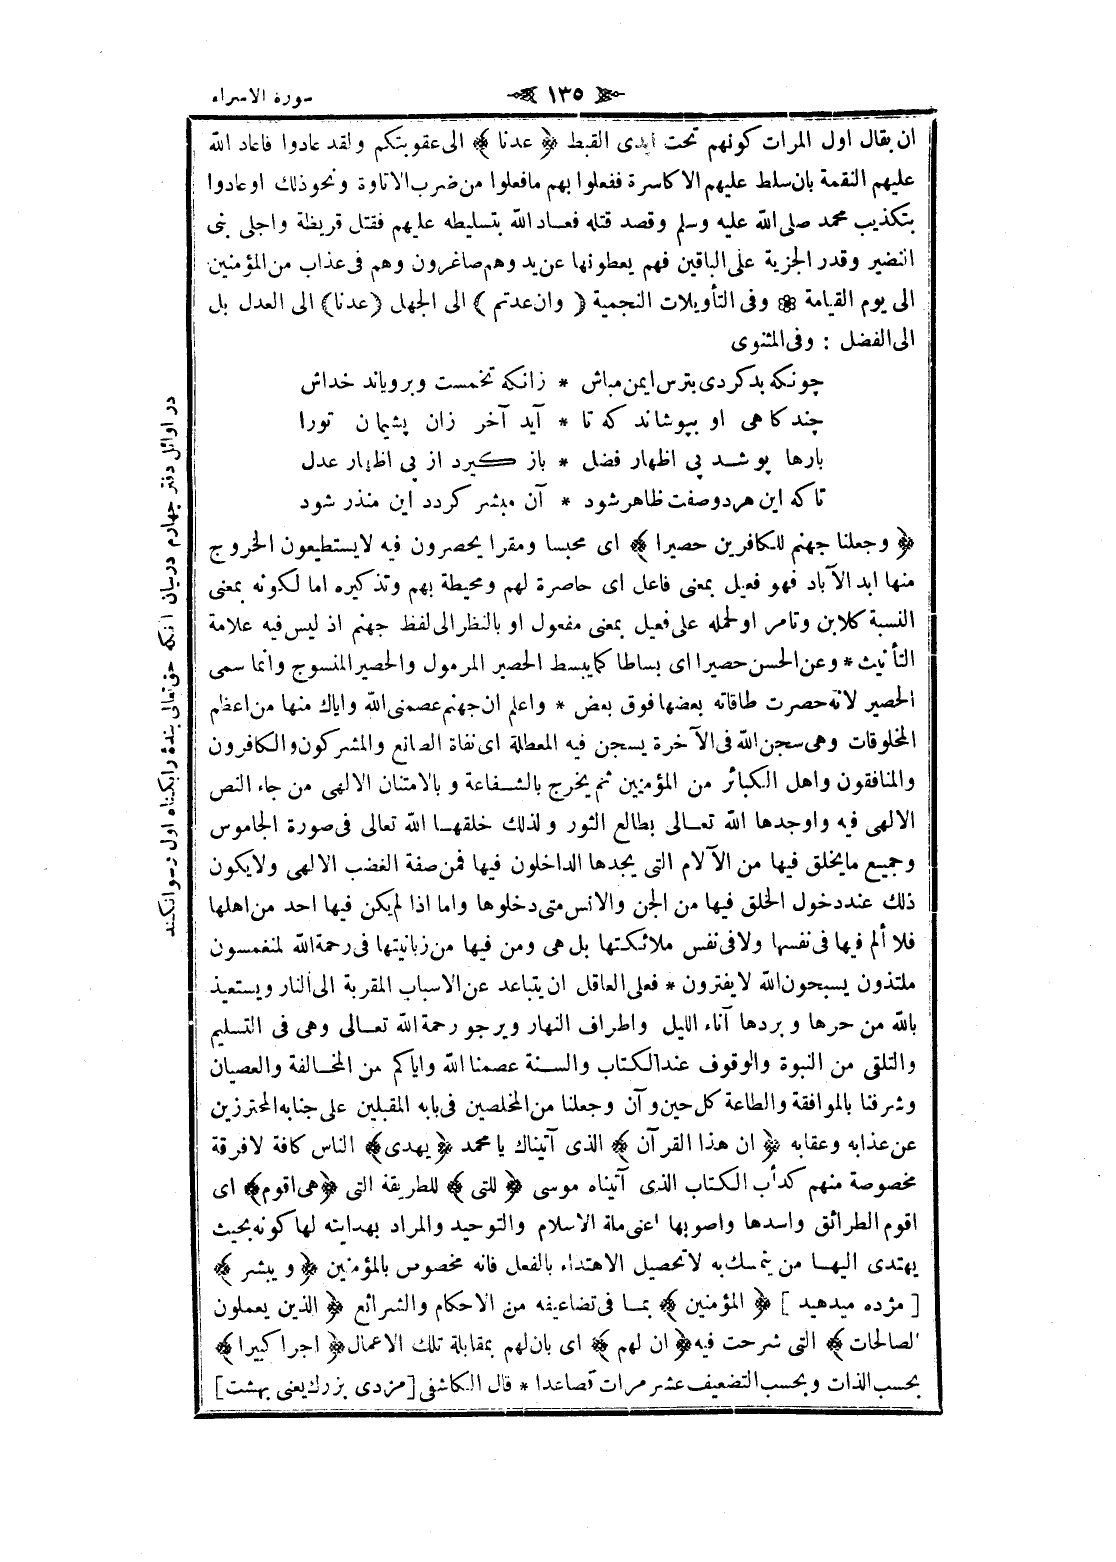 سورة الاسراء
١٣٥
ان يقال اول المرات كونهم تحت ايدى القبط ﴿ عدنا ﴾ الى عقوبتكم ولقد عادوا فاعاد الله
عليهم النقمة بان سلط عليهم الاكاسرة ففعلوا بهم مافعلوا من ضرب الاتاوة ونحو ذلك او عادوا
بتكذيب محمد صلى الله عليه وسلم وقصد قتله فعاد الله بتسليطه عليهم فقتل قريظة واجلى بنى
النضير وقدر الجزية على الباقين فهم يعطونها عن يد وهم صاغرون وهم فى عذاب من المؤمنين
الى يوم القيامة ❁ وفى التأويلات النجمية ( وان عدتم ) الى الجهل (عدنا) الى العدل بل
الى الفضل : وفى المثنوى
چونكه بد كردى بترس ايمن مباش * زانكه تخمست وبروياند خداش
چند كاهى او بپوشاند كه تا * آيد آخر زان پشيمان تورا
بارها پوشد پى اظهار فضل * باز كيرد از پى اظهار عدل
تا كه اين هر دو صفت ظاهر شود * آن مبشر كردد اين منذر شود
﴿ وجعلنا جهنم للكافرين حصيرا ﴾ اى محبسا ومقرا يحصرون فيه لايستطيعون الخروج
منها ابد الآباد فهو فعيل بمعنى فاعل اى حاصرة لهم ومحيطة بهم وتذكيره اما لكونه بمعنى
النسبة كلابن وتامر او لحمله على فعيل بمعنى مفعول او بالنظر الى لفظ جهنم اذ ليس فيه علامة
التأنيث * وعن الحسن حصيرا اى بساطا كما يبسط الحصير المرمول والحصير المنسوج وانما سمى
الحصير لانه حصرت طاقاته بعضها فوق بعض * واعلم ان جهنم عصمنى الله واياك منها من اعظم
المخلوقات وهى سجن الله فى الآخرة يسجن فيه المعطلة اى نفاة الصانع والمشركون والكافرون
والمنافقون واهل الكبائر من المؤمنين ثم يخرج بالشفاعة وبالامتنان الالهى من جاء النص
الالهى فيه واوجدها الله تعالى بطالع الثور ولذلك خلقها الله تعالى فى صورة الجاموس
وجميع مايخلق فيها من الآلام التى يجدها الداخلون فيها فمن صفة الغضب الالهى ولايكون
ذلك عند دخول الخلق فيها من الجن والانس متى دخلوها واما اذا لم يكن فيها احد من اهلها
فلا ألم فيها فى نفسها ولا فى نفس ملائكتها بل هى ومن فيها من زبانيتها فى رحمة الله لمنغمسون
ملتذون يسبحون الله لايفترون * فعلى العاقل ان يتباعد عن الاسباب المقربة الى النار ويستعيذ
بالله من حرها وبردها آناء الليل واطراف النهار ويرجو رحمة الله تعالى وهى فى التسليم
والتلقى من النبوة والوقوف عند الكتاب والسنة عصمنا الله واياكم من المخالفة والعصيان
وشرفنا بالموافقة والطاعة كل حين وآن وجعلنا من المخلصين فى بابه المقبلين على جنابه المحترزين
عن عذابه وعقابه ﴿ ان هذا القرآن ﴾ الذى آتيناك يا محمد ﴿ يهدى ﴾ الناس كافة لا فرقة
مخصوصة منهم كدأب الكتاب الذى آتيناه موسى ﴿ للتى ﴾ للطريقة التى ﴿ هى اقوم ﴾ اى
اقوم الطرائق واسدها واصوبها اعنى ملة الاسلام والتوحيد والمراد بهدايته لها كونه بحيث
يهتدى اليها من يتمسك به لا تحصيل الاهتداء بالفعل فانه مخصوص بالمؤمنين ﴿ ويبشر ﴾
[ مژده ميدهيد ] ﴿ المؤمنين ﴾ بما فى تضاعيفه من الاحكام والشرائع ﴿ الذين يعملون
الصالحات ﴾ التى شرحت فيه ﴿ ان لهم ﴾ اى بان لهم بمقابلة تلك الاعمال ﴿ اجرا كبيرا ﴾
بحسب الذات وبحسب التضعيف عشر مرات فصاعدا * قال الكاشفى [ مزدى بزرك يعنى بهشت ]
در اوائل دفتر چهارم در بيان آنكه حق تعالى بندۀ را بكناه اول رسوا نكند